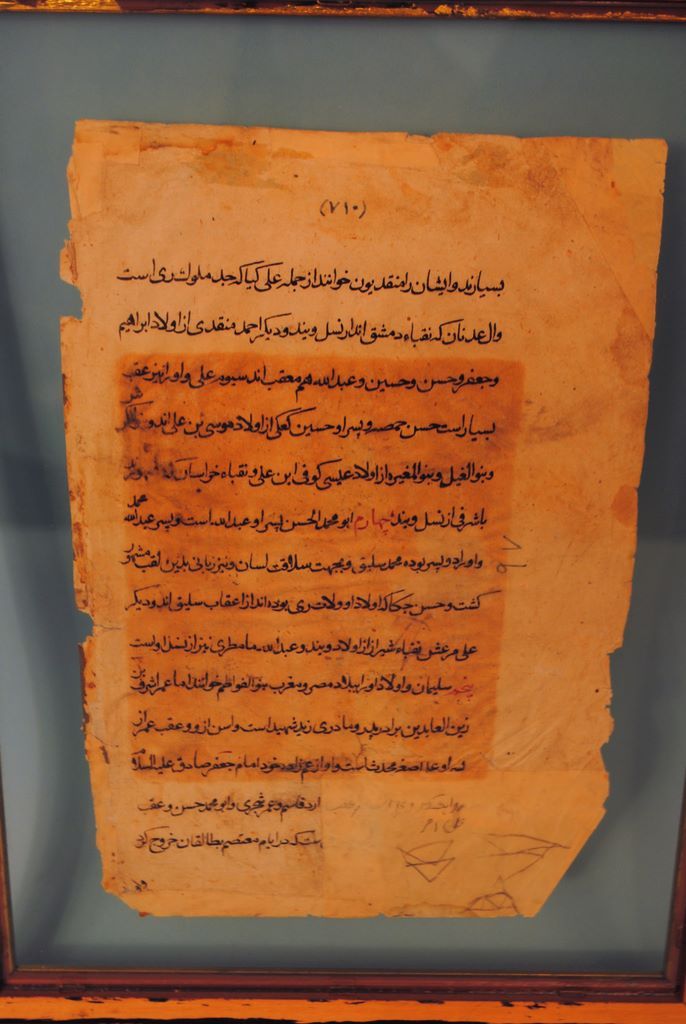 (۷۱۰)
بسیارند و ایشان را منقدیون خوانند از جمله علی کیا که جد ملوک ری است
وال عدنان که نقباء دمشق اند از نسل ویند و دیگر احمد منقدی از اولاد ابراهیم
وجعفر وحسن وحسین وعبدالله هم معقب اند سیوم علی واورا نیز عقب
بسیار است حسن حمصه وپسر او حسین کعکی از اولاد موسی بن علی اند و
وبنو الغیل وبنو المغیره از اولاد عیسی کوفی ابن علی ونقباء خراسان که
باشرفی از نسل ویند چهارم ابو محمد الحسن پسر او عبدالله است وپسر عبدالله محمد
واورا دو پسر بوده محمد سلیق وبجهت سلاقت لسان وتیز زبانی بدین لقب مشهور
کشت وحسن حکاکه اولاد او ولات ری بوده اند از اعقاب سلیق اند ودیگر
علی مرعش نقباء شیراز از اولاد ویند وعبدالله مامطری نیز از نسل اوست
پنجم سلیمان واولاد اورا ببلاد مصر ومغرب بنو الفواطم خوانند اما عمر اشرف بن
زین العابدین برادر پدر ومادری زید شهید است واسن ازو وعقب عمر از
علی اصغر محدث است واو از عم زاده خود امام جعفر صادق علیه السلام
دارد قاسم وعمر شجری وابو محمد حسن وعقب
ست که در ایام معتصم بطالقان خروج کرد